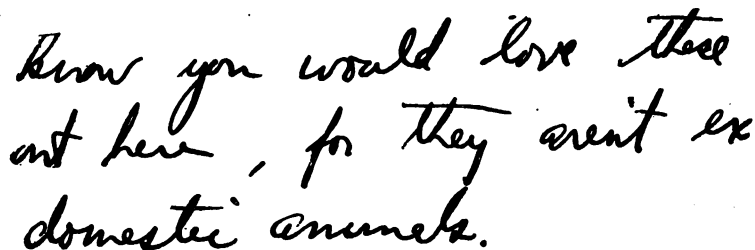 Know you would love these
out here, for they aren't ex
domestic animals.